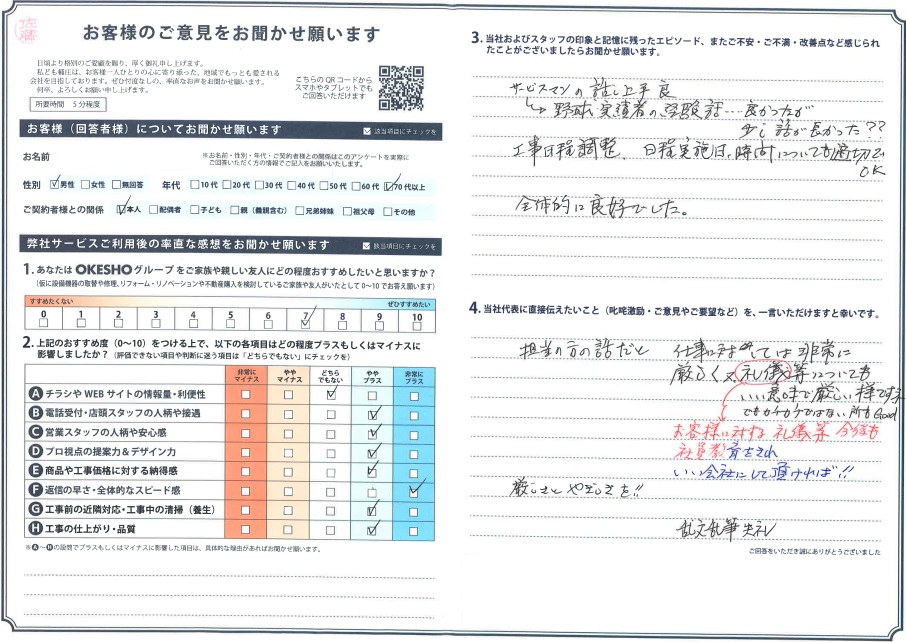 佐藤
お客様のご意見をお聞かせ願います
日頃より格別のご愛顧を賜り、厚く御礼申し上げます。
私ども桶庄は、お客様一人ひとりの心に寄り添った、地域でもっとも愛される
会社を目指しております。ぜひ忖度なしの、率直なお声をお聞かせ願います。
何卒、よろしくお願い申し上げます。
所要時間 5分程度
こちらのQRコードから
スマホやタブレットでも
ご回答いただけます
お客様（回答者様）についてお聞かせ願います
該当項目にチェックを
お名前
※お名前・性別・年代・ご契約者様との関係はこのアンケートを実際に
ご回答いただく方の情報でご記入をお願いいたします。
性別 男性 女性 無回答 年代 10代 20代 30代 40代 50代 60代 70代以上
ご契約者様との関係 本人 配偶者 子ども 親（義親含む） 兄弟姉妹 祖父母 その他
弊社サービスご利用後の率直な感想をお聞かせ願います
該当項目にチェックを
1. あなたはOKESHOグループをご家族や親しい友人にどの程度おすすめしたいと思いますか？
（仮に設備機器の取替や修理、リフォーム・リノベーションや不動産購入を検討しているご家族や友人がいたとして0〜10でお答え願います）
すすめたくない ぜひすすめたい
0 1 2 3 4 5 6 7 8 9 10
2. 上記のおすすめ度（0〜10）をつける上で、以下の各項目はどの程度プラスもしくはマイナスに
影響しましたか？（評価できない項目や判断に迷う項目は「どちらでもない」にチェックを）
非常にマイナス ややマイナス どちらでもない ややプラス 非常にプラス
A チラシやWEBサイトの情報量・利便性
B 電話受付・店頭スタッフの人柄や接遇
C 営業スタッフの人柄や安心感
D プロ視点の提案力＆デザイン力
E 商品や工事価格に対する納得感
F 返信の早さ・全体的なスピード感
G 工事前の近隣対応・工事中の清掃（養生）
H 工事の仕上がり・品質
※A〜Hの設問でプラスもしくはマイナスに影響した項目は、具体的な理由があればお聞かせ願います。
3. 当社およびスタッフの印象と記憶に残ったエピソード、またご不安・ご不満・改善点など感じられ
たことがございましたらお聞かせ願います。
サービスマンの話し上手 良
野球 実績者の 経験話…良かったが
少し話が長かった??
工事日程調整、日程実施日、時間についても適切で
OK
全体的に良好でした。
4. 当社代表に直接伝えたいこと（叱咤激励・ご意見やご要望など）を、一言いただけますと幸いです。
担当の方の話だと 仕事に対しては非常に
厳るく又 礼儀等についても
いい意味で厳しい様です
でもガチガチではない所も Good
お客様に対する 礼儀等 今後も
社員教育をされ
いい会社にして頂ければ!!
厳しさと やさしさを!!
乱文乱筆 失礼
ご回答をいただき誠にありがとうございました